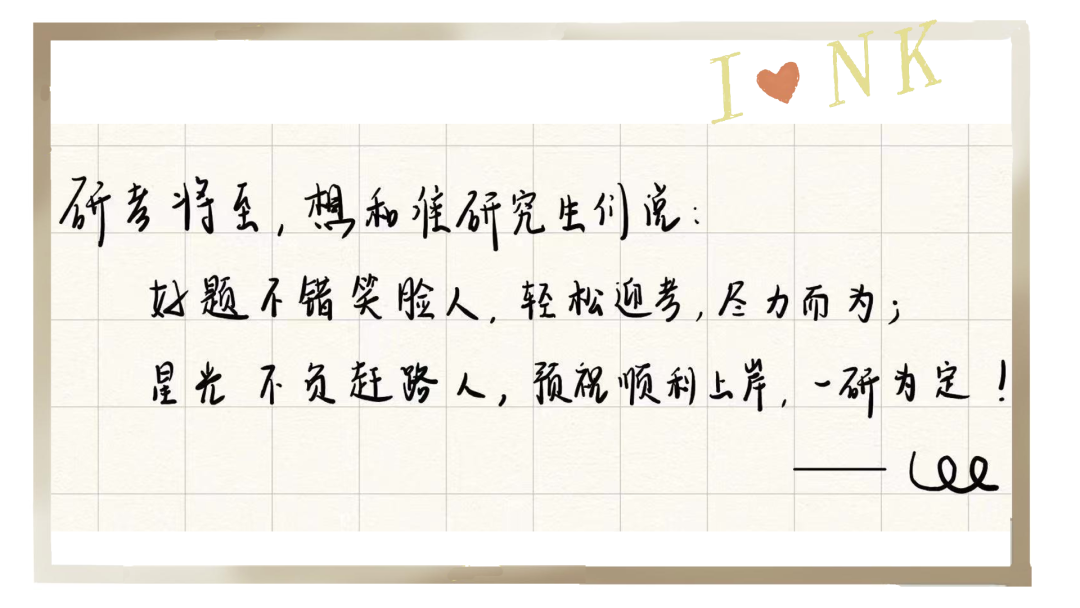 I ❤ NK
研考将至，想和准研究生们说：
好题不错笑脸人，轻松迎考，尽力而为；
星光不负赶路人，预祝顺利上岸，一研为定！
—— Lee